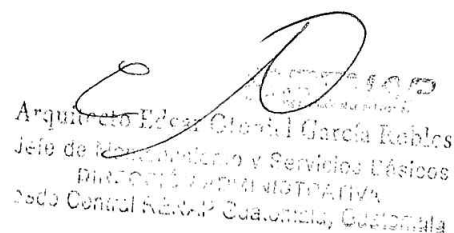 Arquitecto Edgar García Robles
Jefe de Mantenimiento y Servicios Básicos
DIRECCIÓN ADMINISTRATIVA
Sede Central RENAP Guatemala, Guatemala